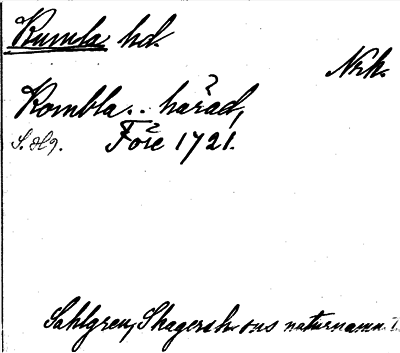 Kumla hd.
Nrk.
Kombla.. härad,
Före 1721.
Sahlgren, Skagersh. ons naturnamn